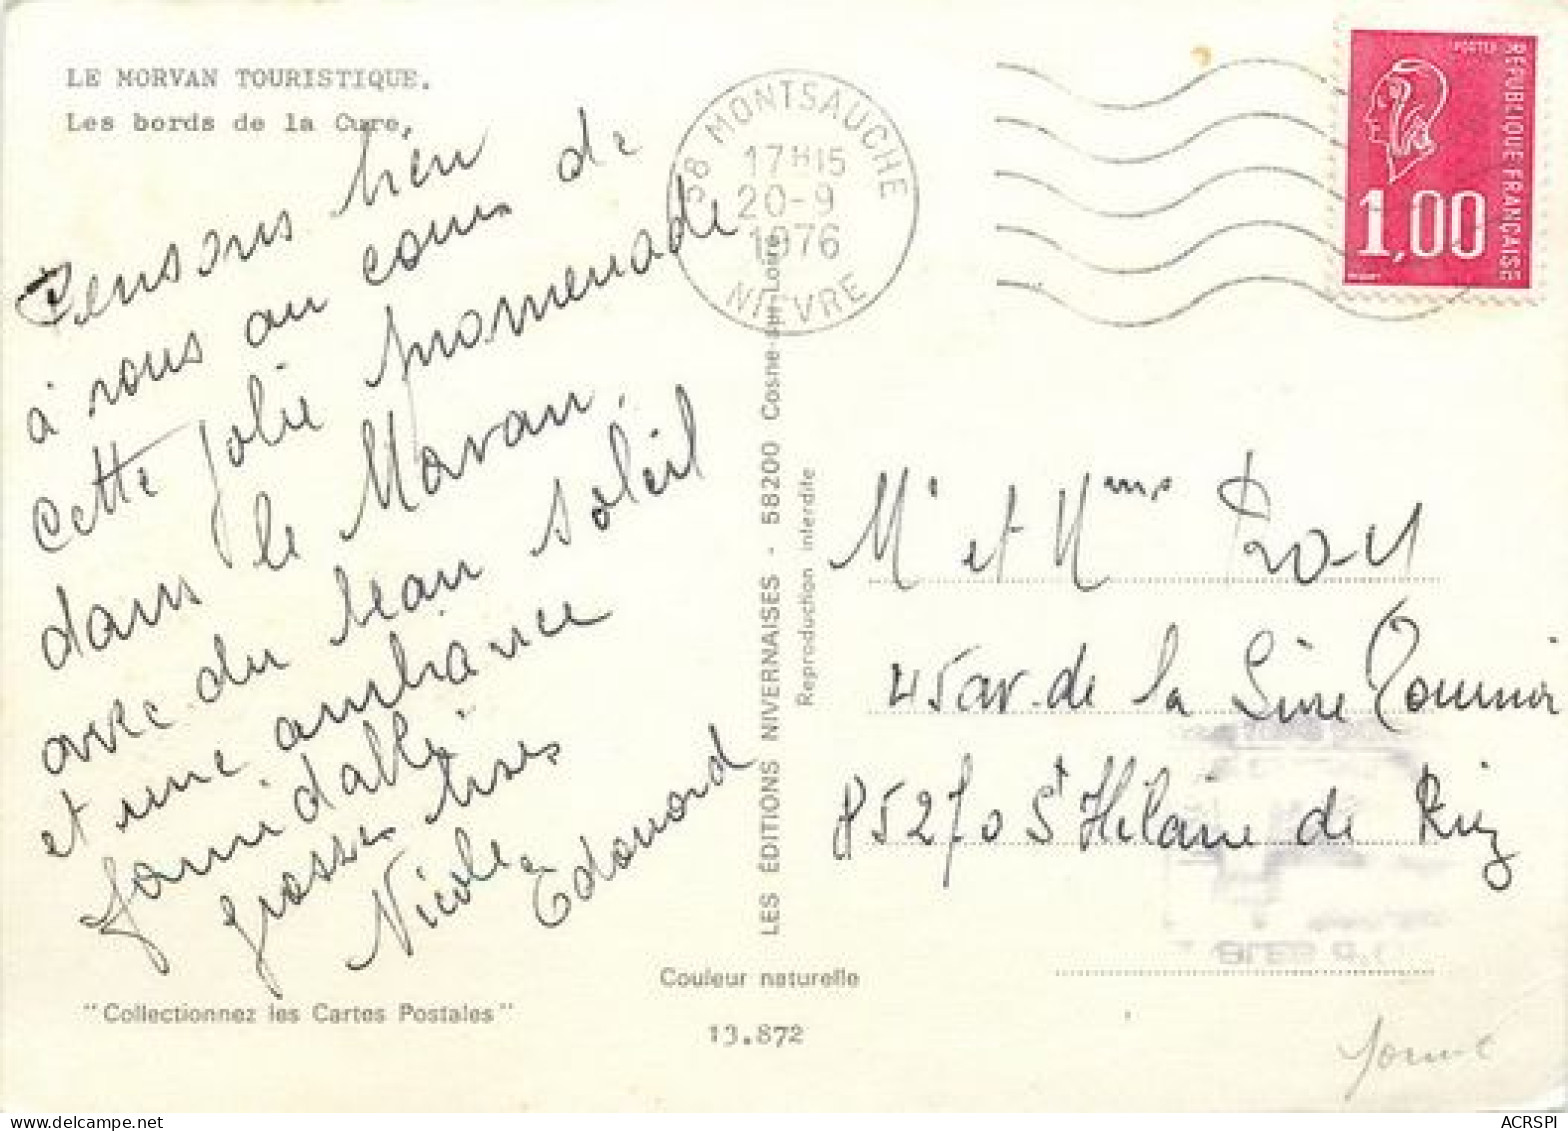 LE MORVAN TOURISTIQUE.
Les bords de la Cure.
Pensons bien
à vous au cours de
cette jolie promenade
dans le Morvan,
avec du beau soleil
et une ambiance
formidable
grosses bises
Nicole Edouard
"Collectionnez les Cartes Postales"
58 MONTSAUCHE
17H15
20-9
1976
NIEVRE
LES ÉDITIONS NIVERNAISES - 58200 Cosne-sur-Loire
Reproduction interdite
Couleur naturelle
13.872
POSTES
REPUBLIQUE FRANÇAISE
1,00
Mr et Mme
45 av. de la
85270 St Hilaire de Riez
ACRSPI